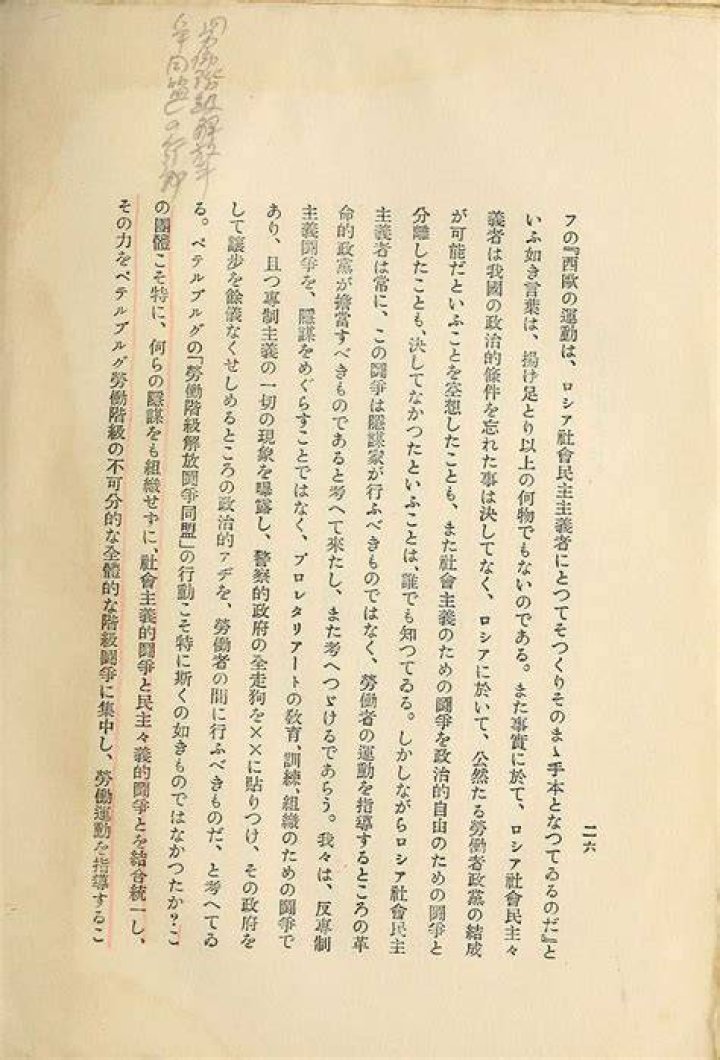 勞働階級解放斗
争同盟の行動
二六
フの『西歐の運動は、ロシア社會民主主義者にとつてそつくりそのまゝ手本となつてゐるのだ』と
いふ如き言葉は、揚け足とり以上の何物でもないのである。また事實に於て、ロシア社會民主々
義者は我國の政治的條件を忘れた事は決してなく、ロシアに於いて、公然たる勞働者政黨の結成
が可能だといふことを空想したことも、また社會主義のための鬪爭を政治的自由のための鬪爭と
分離したことも、決してなかつたといふことは、誰でも知つてゐる。しかしながらロシア社會民主
主義者は常に、この鬪爭は隱謀家が行ふべきものではなく、勞働者の運動を指導するところの革
命的政黨が擔當すべきものであると考へて來たし、また考へつゞけるであらう。我々は、反專制
主義鬪爭を、隱謀をめぐらすことではなく、プロレタリアートの敎育、訓練、組織のための鬪爭で
あり、且つ專制主義の一切の現象を曝露し、警察的政府の全走狗を××に貼りつけ、その政府を
して讓步を餘儀なくせしめるところの政治的アヂを、勞働者の間に行ふべきものだ、と考へてゐ
る。ペテルブルグの「勞働階級解放鬪爭同盟」の行動こそ特に斯くの如きものではなかつたか？こ
の團體こそ特に、何らの隱謀をも組織せずに、社會主義的鬪爭と民主々義的鬪爭とを結合統一し、
その力をペテルブルグ勞働階級の不可分的な全體的な階級鬪爭に集中し、勞働運動を指導するこ